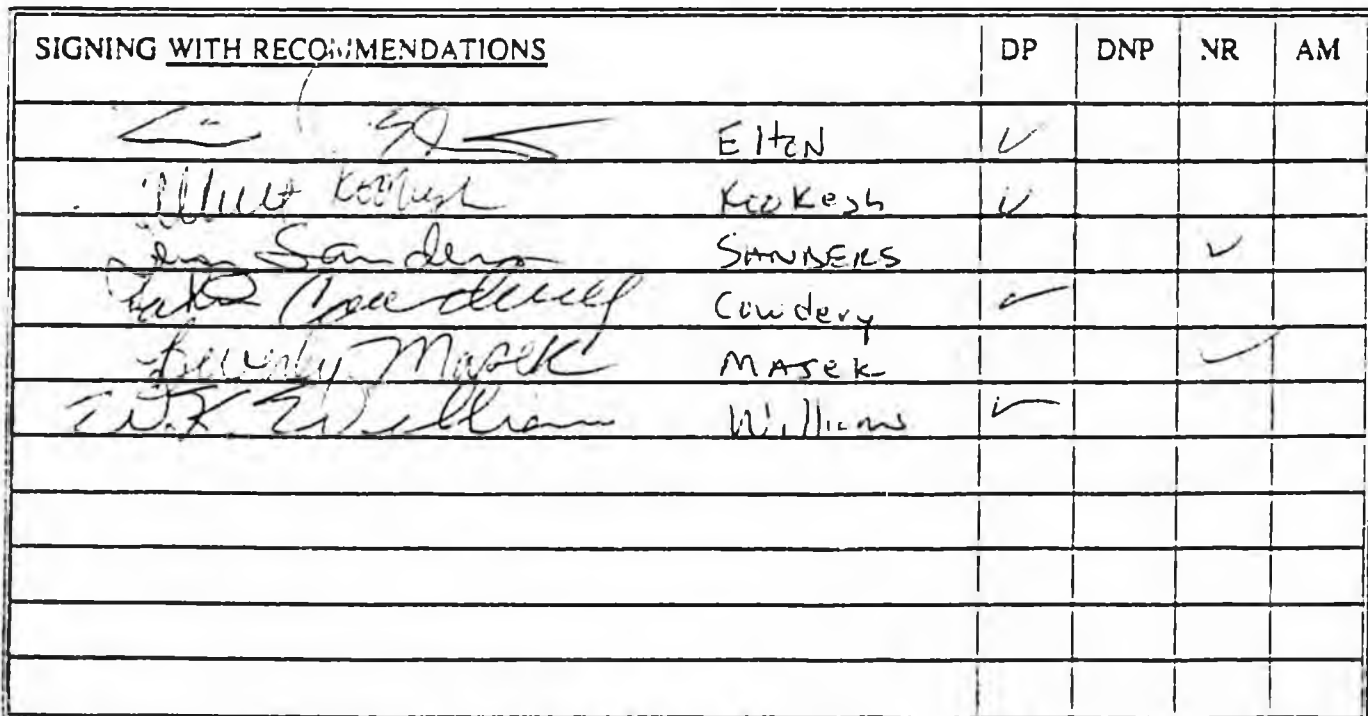 SIGNING WITH RECOMMENDATIONS DP DNP NR AM
Elton ✓
Albert Kookesh Kookesh ✓
Jerry Sanders SANDERS ✓
Cowdery Cowdery ✓
Beverly Masek MASEK ✓
W.K. Williams Williams ✓